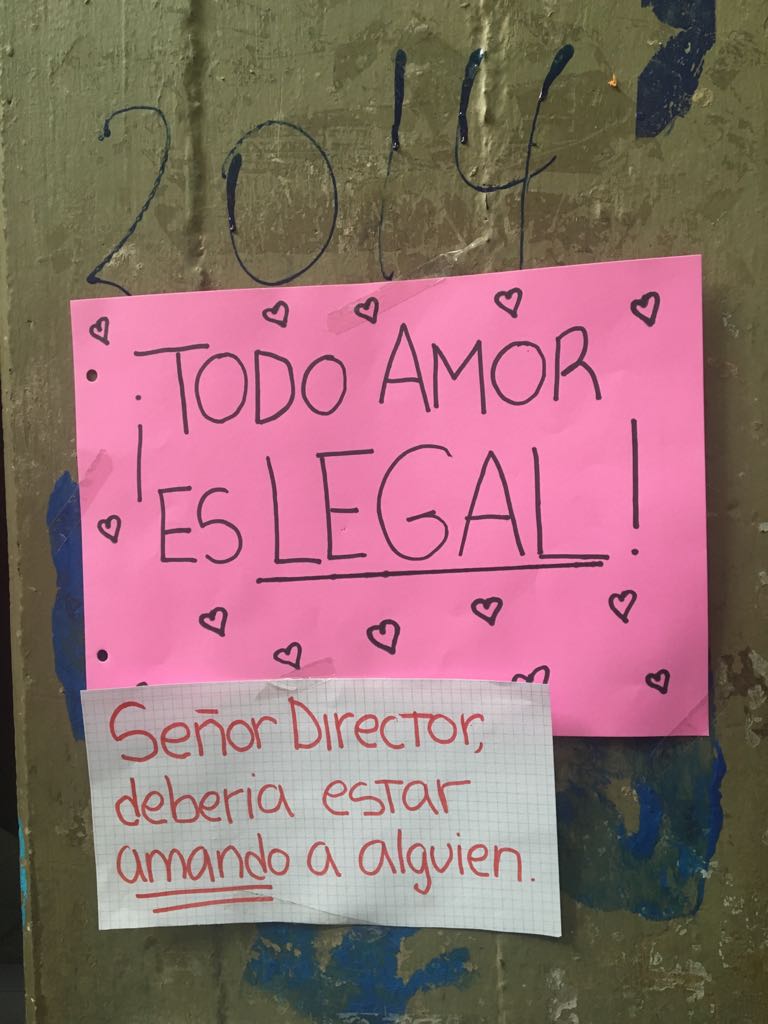 2014
¡TODO AMOR
ES LEGAL!
Señor Director,
deberia estar
amando a alguien.